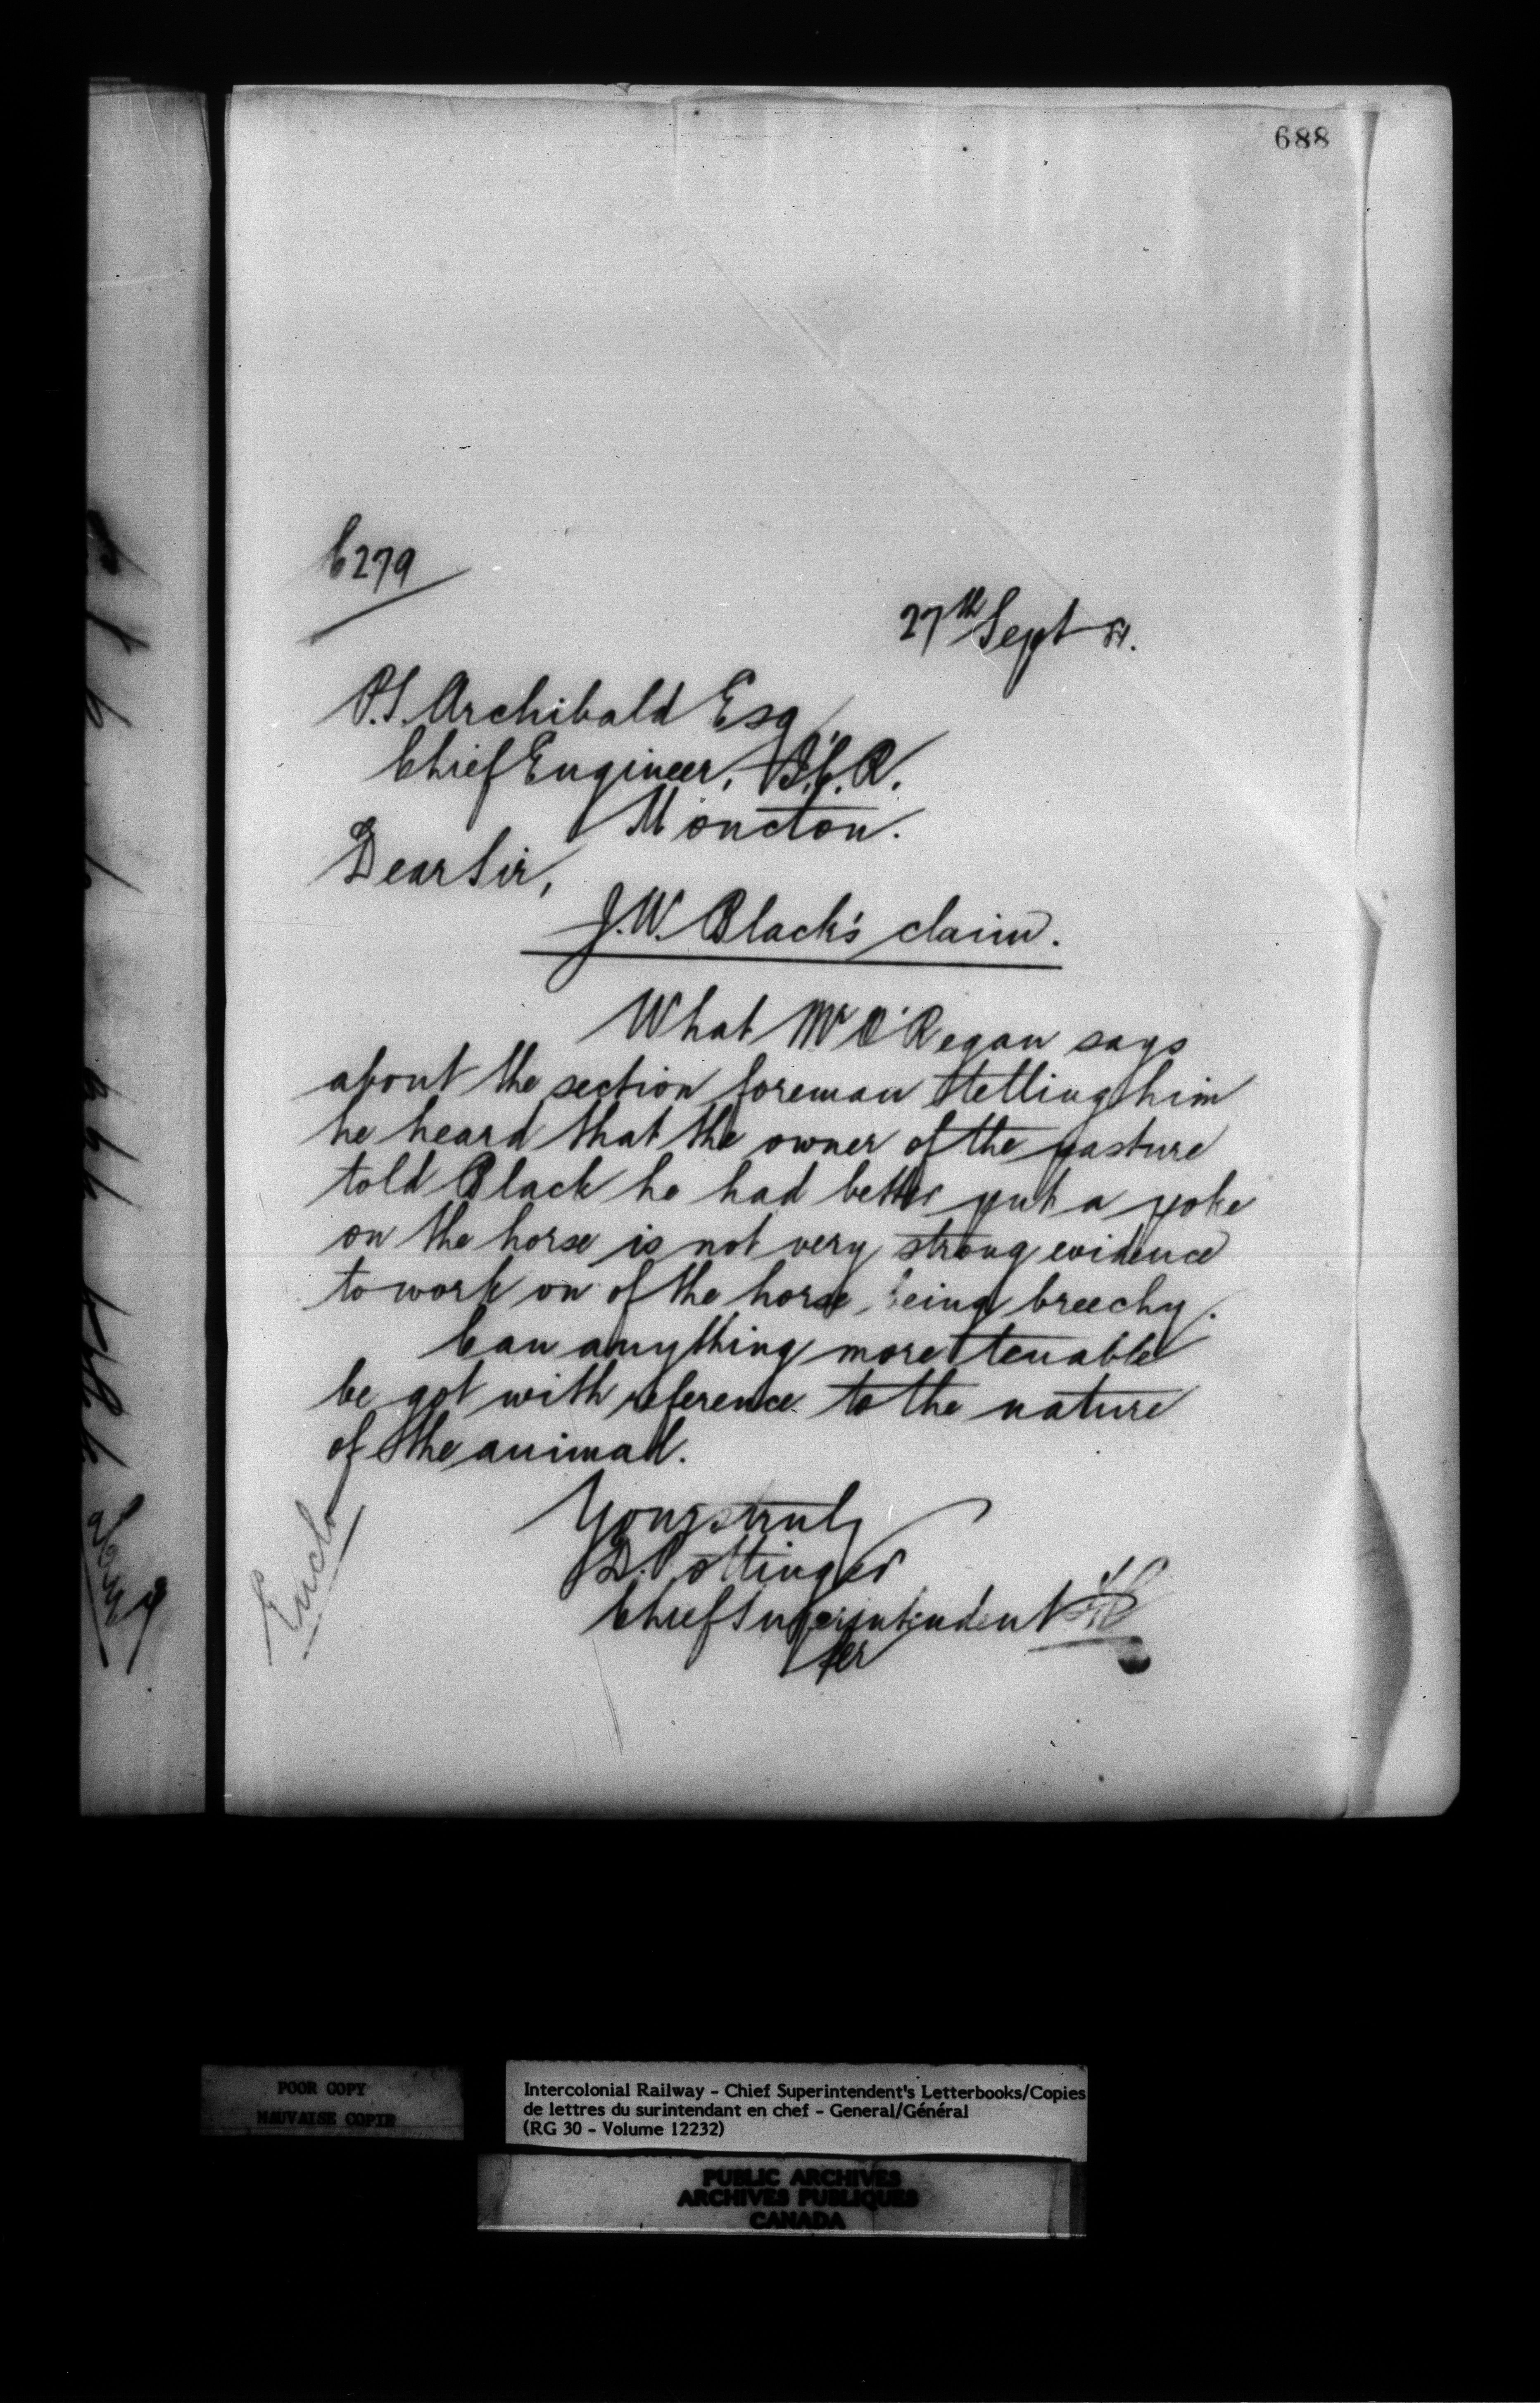 688
C279
27th Sept 81.
P.S. Archibald Esq
Chief Engineer, I.C.R.
Moncton.
Dear Sir,
J.W. Black's claim.
What Mr O'Regan says
about the section foreman telling him
he heard that the owner of the pasture
told Black he had better put a yoke
on the horse is not very strong evidence
to work on of the horse being breechy.
Can anything more tenable
be got with reference to the nature
of the animal.
Yours truly
D. Pottinger
Chief Superintendent
per
Enclo
POOR COPY
MAUVAISE COPIE
Intercolonial Railway - Chief Superintendent's Letterbooks/Copies
de lettres du surintendant en chef - General/Général
(RG 30 - Volume 12232)
PUBLIC ARCHIVES
ARCHIVES PUBLIQUES
CANADA